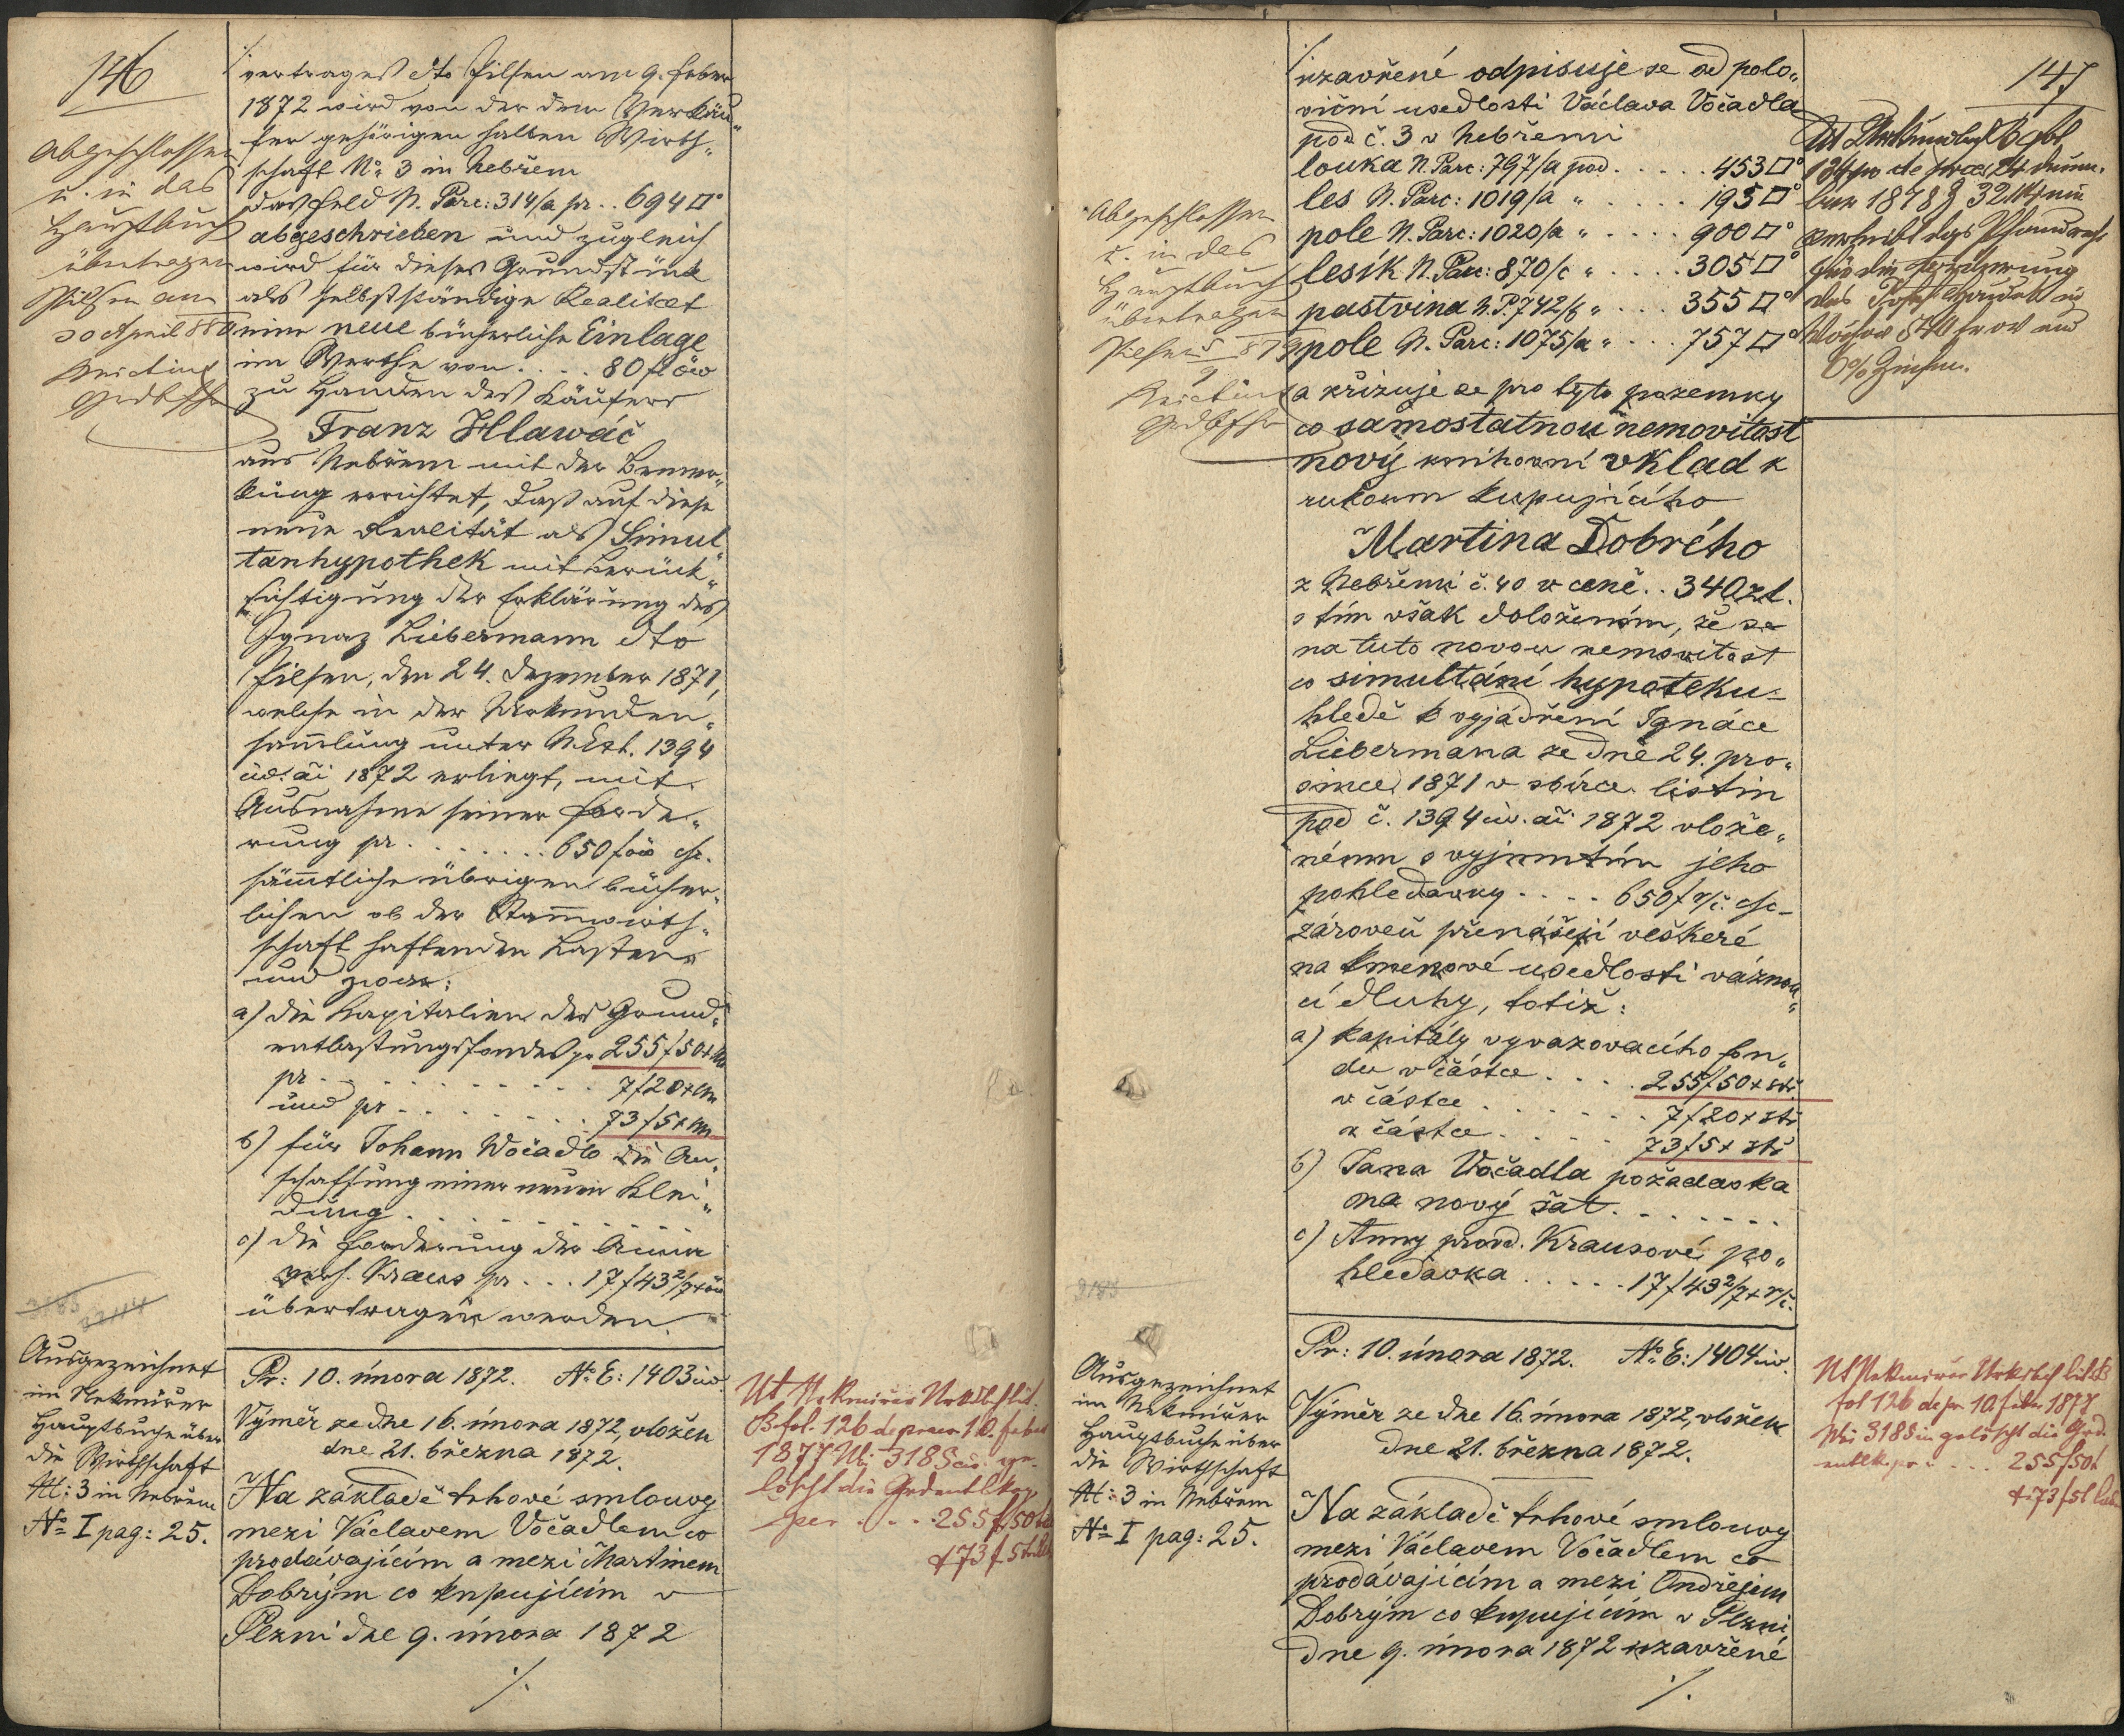 146
Abgeschlossen
u. in das
Hauptbuch
übertragen
Pilsen am
30 April 880
./. vertrages dto Pilsen am 9. Feber
1872 wird von der dem Verkäu„
fer gehörigen halben Wirth„
schaft No: 3 in Nebřem
das Feld N. Parc: 314/a pr. . 694□°
abgeschrieben und zugleich
wird für dieses Grundstück
als selbstständige Realitæt
eine neue bücherliche Einlage
im Werthe von . . . . 80 fl öw
zu Handen des Käufers
Franz Hlawáč
aus Nebřem mit der Bemer„
kung errichtet, daß auf diese
neue Realität als Simul„
tanhypothek mit Berück„
sichtigung der Erklärung des
Ignaz Liebermann dto
Pilsen, den 24. Dezember 1871,
welche in der Urkunden„
sam̄lung unter N. Exh. 1394
civ. ai 1872 erliegt, mit
Ausnahme seiner Forde„
rung pr . . . . . . . 650 f öw csc.
säm̄tliche übrigen bücher„
lichen ob der Stam̄wirth„
schaft haftenden Lasten
und zwar:
a) die Kapitalien des Grund„
entlastungsfondes pr 255 f 50 x Cm
pr . . . . . . . . . . 7 f 20 x Cm
und pr . . . . . . . . 73 f 5 x Cm
b) für Johann Wočadlo die An„
schaffung einer neuen Klei„
dung . . . . . . . . . .
c) die Forderung der Anna
verh. Kraus pr . . . 17 f 43 2/7 x öw
übertragen werden.
3185 3244
Ausgezeichnet
im Nekmířer
Hauptbuche über
die Wirthschaft
N: 3 in Nebřem
No I pag: 25.
Pr: 10. února 1872. No E: 1403 civ.
Výměr ze dne 16. února 1872, vložen
dne 21. března 1872.
Na základě trhové smlouvy
mezi Václavem Vočadlem co
prodávajícím a mezi Martinem
Dobrým co kupujícím v
Plzni dne 9. února 1872
./.
Ut Nekmířer Urkdbch lit.
B fol. 126 de praes. 10. Feber
1877 Nr: 3185 civ. ge-
löscht die Grdentlkap.
per . . . . 255 f 50
& 73 f 5
147
Abgeschlossen
u. in das
Hauptbuch
übertragen
Pilsen
./. uzavřené odpisuje se od polo„
viční usedlosti Václava Vočadla
pod č. 3 v Nebřemi
louka N. Parc: 797/a pod . . . . . 453□°
les N. Parc: 1019/a „ . . . . . 195□°
pole N. Parc: 1020/a „ . . . . 900□°
lesík N. Parc: 870/c „ . . . . 305□°
pastvina N. P. 742/b „ . . . 355□°
pole N. Parc: 1075/a „ . . . 757□°
a zřizuje se pro tyto pozemky
co samostatnou nemovitost
nový knihovní vklad k
rukoum kupujícího
Martina Dobrého
z Nebřemi č. 40 v ceně . . 340 zl.
s tím však doložením, že se
na tuto novou nemovitost
co simultání hypoteku
hledě k vyjádření Ignáce
Liebermana ze dne 24. pro„
since 1871 v sbírce listin
pod č. 1394 civ. ai 1872 vlože„
nému s vyjmutím jeho
pohledavky . . . . 650 f r/č. csc
zároveň přenášejí veškeré
na kmenové usedlosti váznou„
cí dluhy, totiž:
a) kapitály vyvazovacího fon„
du v částce . . . . 255 f 50 x stř.
v částce . . . . . . . 7 f 20 x stř
v částce . . . . . 73 f 5 x stř
b) Jana Vočadla požadavka
na nový šat . . . . . . .
c) Anny provd. Krausové po„
hledávka . . . . . 17 f 43 2/7 x r/č.
3185
Ausgezeichnet
im Nekmířer
Hauptbuche über
die Wirthschaft
N: 3 in Nebřem
No I pag: 25.
Pr: 10. února 1872. No E: 1404 civ.
Výměr ze dne 16. února 1872, vložen
dne 21. března 1872.
Na základě trhové smlouvy
mezi Václavem Vočadlem co
prodávajícím a mezi Ondřejem
Dobrým co kupujícím v Plzni
dne 9. února 1872 uzavřené
./.
1878
das Pfandrecht
für die Forderung
6% Zinsen.
Ut Nekmířer Urkdbch lit B
fol 126 de pr. 10 Feber 1877
Nr: 3185 civ gelöscht die Grd.
entlk. pr . . . . 255 f 50 x
& 73 f 5